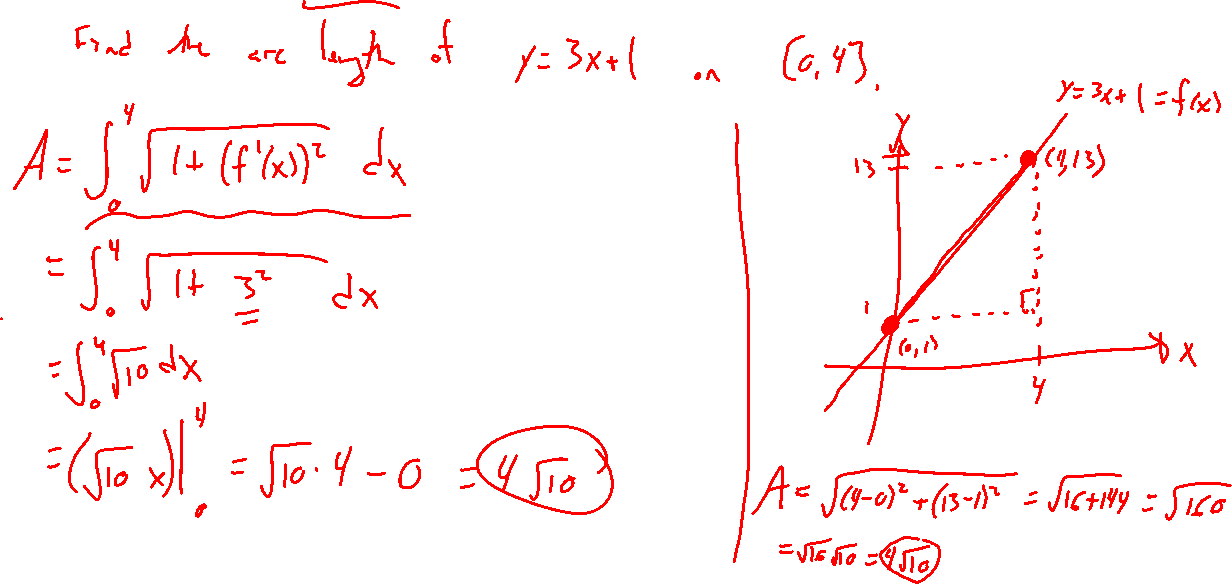 Find the arc length of y = 3x+1 on [0, 4].
A = ∫₀⁴ √(1 + (f'(x))²) dx
= ∫₀⁴ √(1 + 3²) dx
= ∫₀⁴ √10 dx
= (√10 x)|₀⁴ = √10 · 4 − 0 = 4√10
y = 3x+1 = f(x)
y
13
(4,13)
1
(0,1)
x
4
A = √((4−0)² + (13−1)²) = √(16+144) = √160
= √16 √10 = 4√10